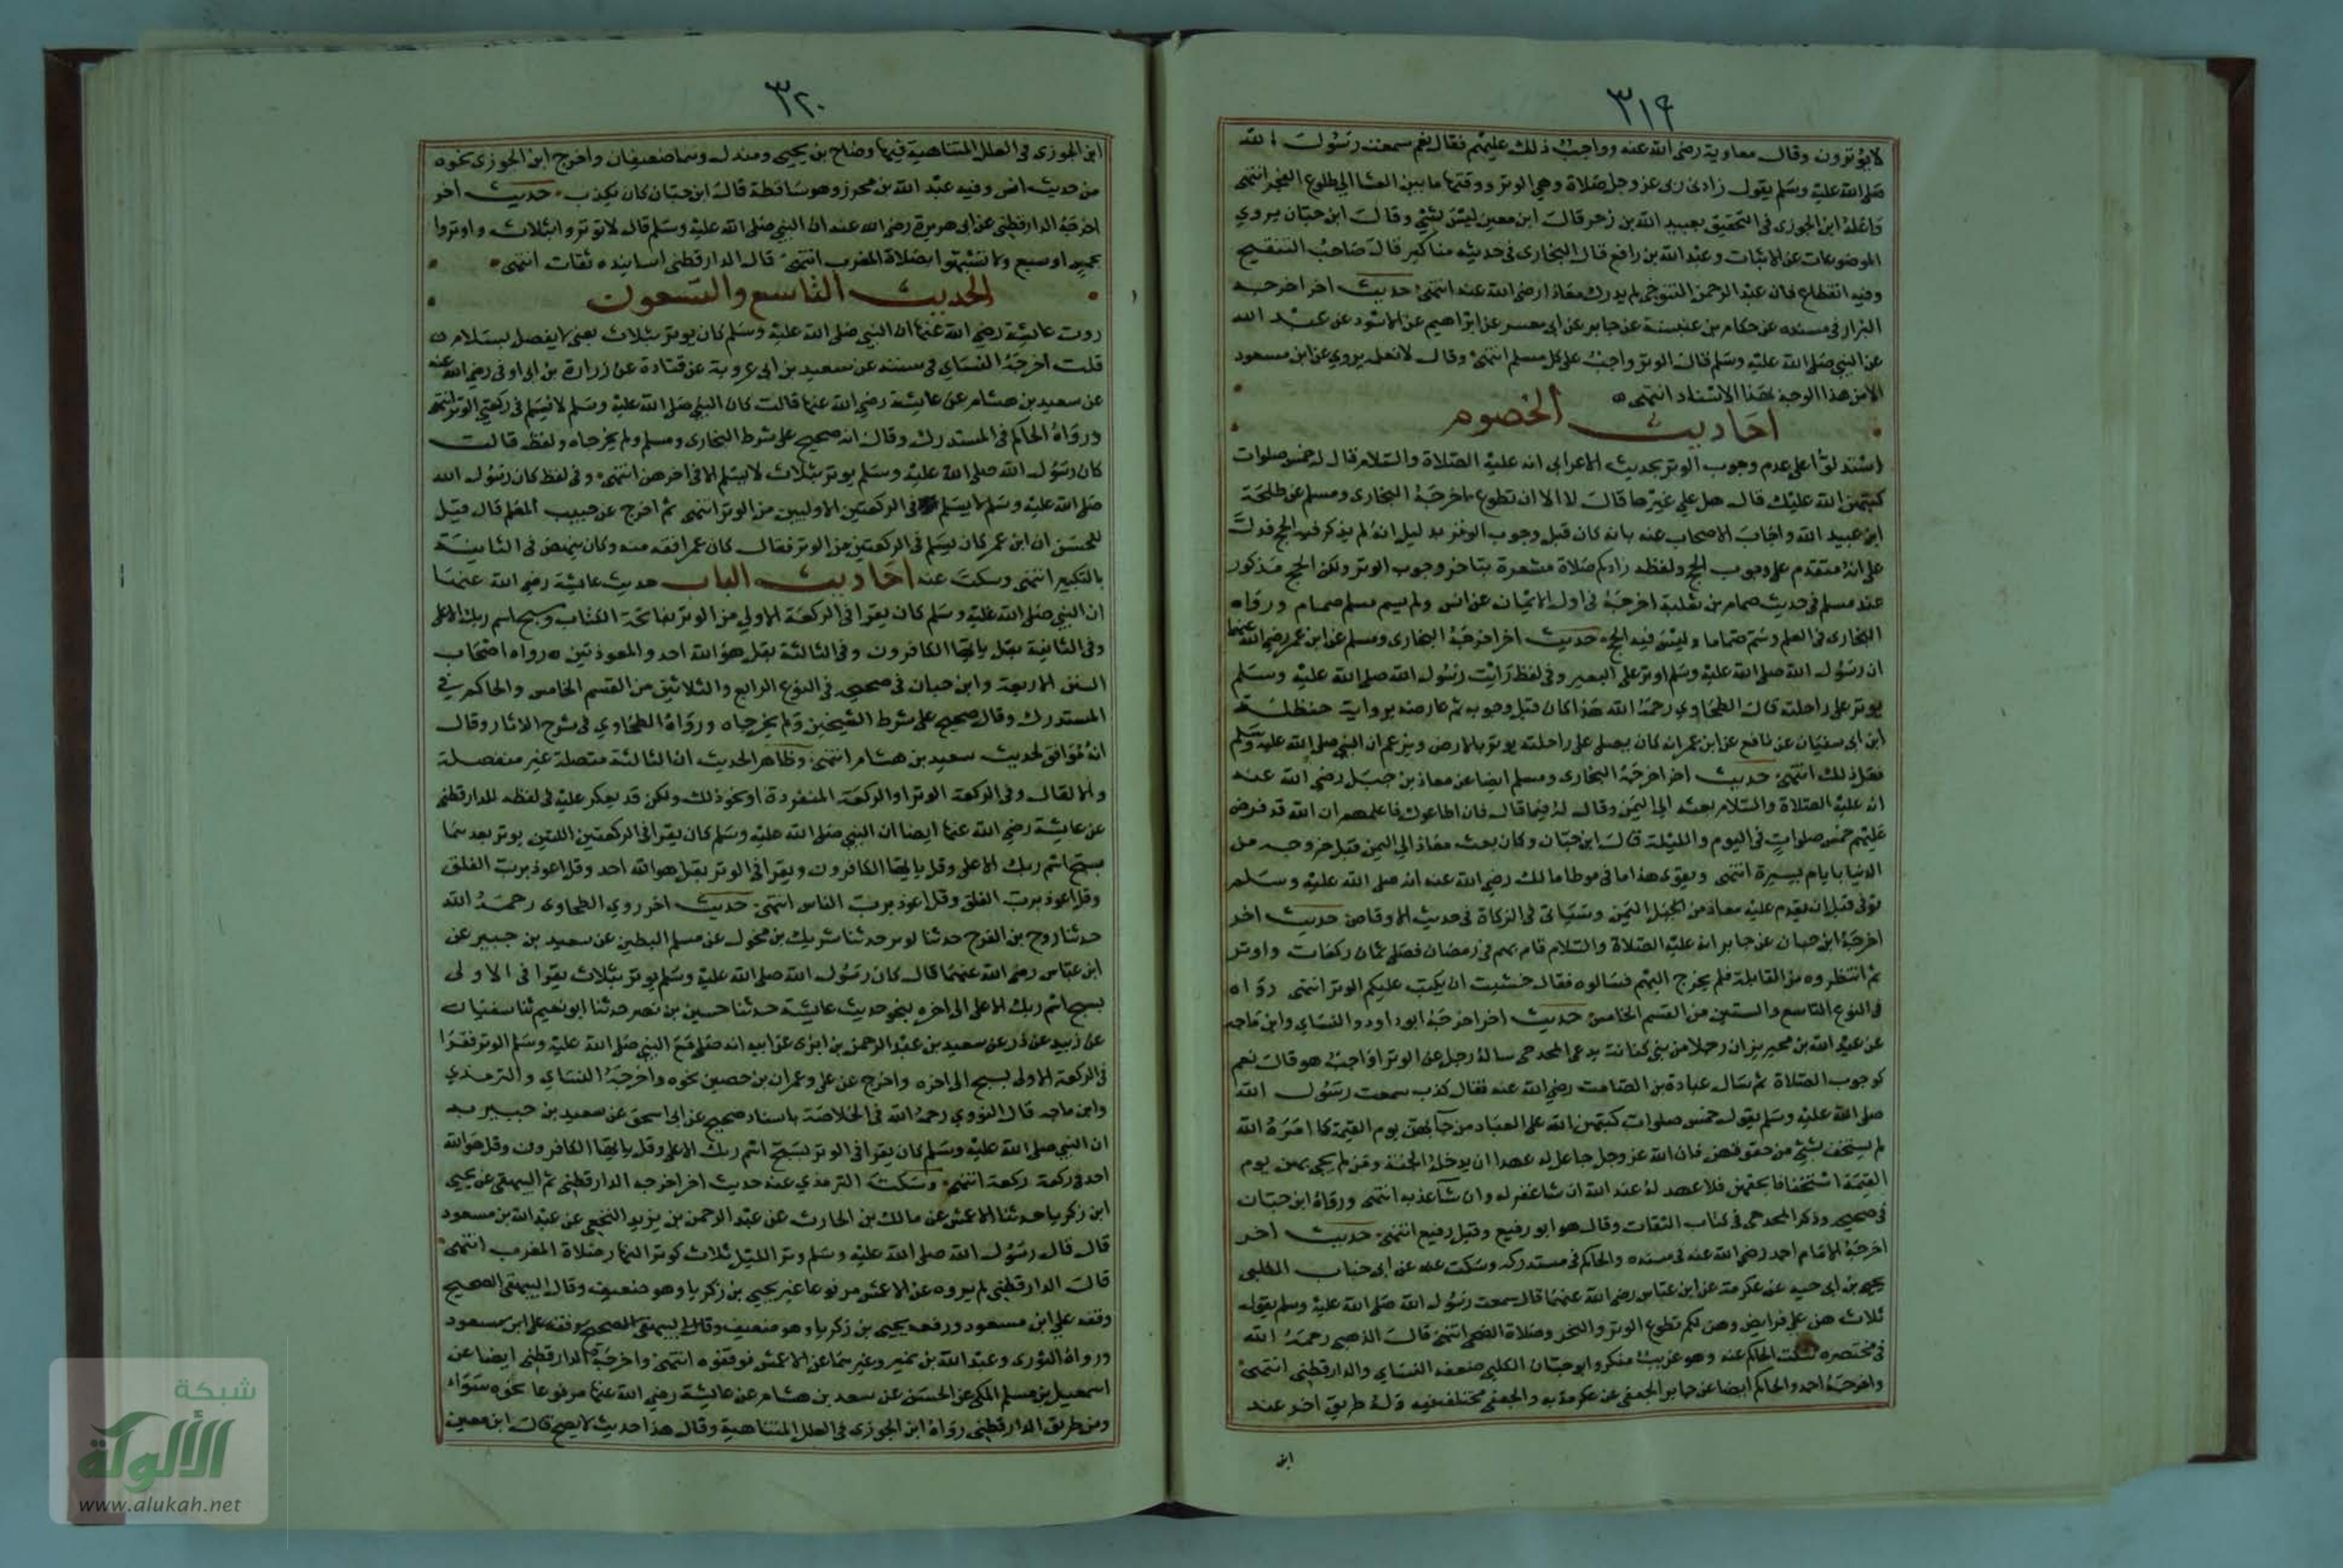 ٣١٩
لا يوترون وقال معاوية رضى الله عنه وواجب ذلك عليهم فقال نعم سمعت رسول الله
صلى الله عليه وسلم يقول زادنى ربى عز وجل صلاة وهي الوتر ووقتها ما بين العشا الي طلوع الفجر انتهى
واعله ابن الجوزى فى التحقيق بعبيد الله بن زحر قال ابن معين ليس بشئ وقال ابن حبان يروي
الموضوعات عن الاثبات وعبد الله بن رافع قال البخارى فى حديثه مناكير قال صاحب التنقيح
وفيه انقطاع فان عبد الرحمن التنوخى لم يدرك معاذا رضى الله عنه انتهى حديث اخر اخرجه
البزار فى مسنده عن حكام بن عنبسة عن جابر عن ابى معسر عن ابراهيم عن الاسود عن عبد الله
عن النبي صلى الله عليه وسلم قال الوتر واجب على كل مسلم انتهى وقال لا نعله يروي عن ابن مسعود
الا من هذا الوجه بهذا الاسناد انتهى
احاديث الخصوم
استدلوا على عدم وجوب الوتر بحديث الاعرابى انه عليه الصلاة والسلام قال له خمس صلوات
كتبهن الله عليك قال هل علي غيرها قال لا الا ان تطوع اخرجه البخارى ومسلم عن طلحة
ابن عبيد الله واجاب الاصحاب عنه بانه كان قبل وجوب الوتر بدليل انه لم يذكر فيه الحج فدل
على انه متقدم على وجوب الحج ولفظه زادكم صلاة مشعرة بتاخر وجوب الوتر ولكن الحج مذكور
عند مسلم فى حديث ضمام بن ثعلبة اخرجه فى اول الايمان عن انس ولم يسم مسلم ضمام ورواه
البخارى فى العلم وسمه ضماما وليس فيه الحج حديث اخر اخرجه البخارى ومسلم عن ابن عمر رضى الله عنهما
ان رسول الله صلى الله عليه وسلم اوتر على البعير وفى لفظ رايت رسول الله صلى الله عليه وسلم
يوتر على راحلته قال الطحاوي رحمه الله هذا كان قبل وجوبه ثم عارضه برواية حنظلة
ابن ابى سفيان عن نافع عن ابن عمر انه كان يصلى على راحلته يوتر بالارض ويزعم ان النبي صلى الله عليه وسلم
فعل ذلك انتهى حديث اخر اخرجه البخارى ومسلم ايضا عن معاذ بن جبل رضي الله عنه
انه عليه الصلاة والسلام بعثه الى اليمن وقال له فيما قال فان اطاعوك فاعلمهم ان الله قد فرض
عليهم خمس صلوات فى اليوم والليلة قال ابن حبان وكان بعث معاذ الى اليمن قبل خروجه من
الدنيا بايام يسيرة انتهى ويقوى هذا ما فى موطا مالك رضي الله عنه انه صلى الله عليه وسلم
توفى قبل ان يقدم عليه معاذ من الجهل اليمن وسياتى فى الزكاة فى حديث الاوقاص حديث اخر
اخرجه ابن حبان عن جابر انه عليه الصلاة والسلام قام بهم فى رمضان فصلى ثمان ركعات واوتر
ثم انتظروه من القابلة فلم يخرج اليهم فسالوه فقال خشيت ان يكتب عليكم الوتر انتهى رواه
فى النوع التاسع والستين من القسم الخامس حديث اخر اخرجه ابو داود والنساي وابن ماجه
عن عبد الله بن محيريز ان رجلا من بنى كنانة يدعى المخدجى ساله رجل عن الوتر اواجب هو قال نعم
كوجوب الصلاة ثم سال عبادة بن الصامت رضي الله عنه فقال كذب سمعت رسول الله
صلى الله عليه وسلم يقول خمس صلوات كتبهن الله على العباد من جا بهن يوم القيمة كما امره الله
لم يستخف بشئ من حقوقهن فان الله عز وجل جاعل له عهدا ان يدخله الجنة ومن لم يجى بهن يوم
القيمة استخفافا بحقهن فلا عهد له عند الله ان شا غفر له وان شا عذبه انتهى ورواه ابن حبان
فى صحيحه وذكر المخدجى فى كتاب الثقات وقال هو ابو رفيع وقيل رفيع انتهى حديث اخر
اخرجه الامام احمد رضى الله عنه فى مسنده والحاكم فى مستدركه وسكت عنه عن ابى جناب الكلبى
يحيى بن ابى حيه عن عكرمة عن ابن عباس رضى الله عنهما قال سمعت رسول الله صلى الله عليه وسلم يقول
ثلاث هن علي فرايض وهن لكم تطوع الوتر والنحر وصلاة الضحى انتهى قال الذهبى رحمه الله
فى مختصره سكت الحاكم عنه وهو غريب منكر وابو حبان الكلبى ضعفه النساي والدارقطنى انتهى
واخرجه احمد والحاكم ايضا عن جابر الجعفى عن عكرمة به والجعفى مختلف فيه وله طريق اخر عند
ابن
٣٢٠
ابن الجوزى فى العلل المتناهية فيها وضاح بن يحيى ومندل وهما ضعيفان واخرج ابن الجوزى نحوه
من حديث انس وفيه عبد الله بن محرز وهو ساقطة قال ابن حبان كان يكذب حديث اخر
اخرجه الدارقطنى عن ابى هريرة رضى الله عنه ان النبي صلى الله عليه وسلم قال لا توتروا بثلاث واوتروا
بخمس اوسبع ولا تشبهوا بصلاة المغرب انتهى قال الدارقطنى اسانيده ثقات انتهى
الحديث التاسع والتسعون
روت عايشة رضي الله عنها ان النبي صلى الله عليه وسلم كان يوتر بثلاث يعنى لا يفصل بسلام
قلت اخرجه النساي فى سننه عن سعيد بن ابى عروبة عن قتادة عن زرارة بن ابى اوفى رضي الله عنه
عن سعيد بن هشام عن عايشة رضي الله عنها قالت كان النبي صلى الله عليه وسلم لا يسلم فى ركعتى الوتر انتهى
ورواه الحاكم فى المستدرك وقال انه صحيح على شرط البخارى ومسلم ولم يخرجاه ولفظه قالت
كان رسول الله صلى الله عليه وسلم يوتر بثلاث لا يسلم الا فى اخرهن انتهى وفى لفظ كان رسول الله
صلى الله عليه وسلم لا يسلم فى الركعتين الاوليين من الوتر انتهى ثم اخرج عن حبيب المعلم قال قيل
للحسن ان ابن عمر كان يسلم فى الركعتين من الوتر فقال كان عمر افقه منه وكان ينهض فى الثانية
بالتكبير انتهى وسكت عنه احاديث الباب حديث عايشة رضي الله عنها
ان النبي صلى الله عليه وسلم كان يقرا فى الركعة الاولي من الوتر بفاتحة الكتاب وسبح اسم ربك الاعلى
وفى الثانية بقل يا ايها الكافرون وفى الثالثة بقل هو الله احد والمعوذتين رواه اصحاب
السنن الاربعة وابن حبان فى صحيحه فى النوع الرابع والثلاثين من القسم الخامس والحاكم في
المستدرك وقال صحيح على شرط الشيخين ولم يخرجاه ورواه الطحاوي فى شرح الاثار وقال
انه موافق لحديث سعيد بن هشام انتهى وظاهر الحديث ان الثالثة متصلة غير منفصلة
والا لقال وفى الركعة الوتر او الركعة المنفردة او نحو ذلك ولكن قد يعكر عليه فى لفظه للدارقطنى
عن عايشة رضي الله عنها ايضا ان النبي صلى الله عليه وسلم كان يقرا فى الركعتين اللتين يوتر بعدهما
بسبح اسم ربك الاعلى وقل يا ايها الكافرون ويقرا فى الوتر بقل هو الله احد وقل اعوذ برب الفلق
وقل اعوذ برب الفلق وقل اعوذ برب الناس انتهى حديث اخر روي الطحاوى رحمه الله
حدثنا روح بن الفرج حدثنا لوين حدثنا شريك بن مخول عن مسلم البطين عن سعيد بن جبير عن
ابن عباس رضى الله عنهما قال كان رسول الله صلى الله عليه وسلم يوتر بثلاث يقرا فى الاولى
بسبح اسم ربك الاعلى الى اخره بنحو حديث عايشة حدثنا حسين بن نصر حدثنا ابو نعيم ثنا سفيان
عن زبيد عن ذر عن سعيد بن عبد الرحمن بن ابزى عن ابيه انه صلى مع النبي صلى الله عليه وسلم الوتر فقرا
فى الركعة الاولى بسبح الى اخره واخرج عن على وعمران بن حصين نحوه واخرجه النساي والترمذي
وابن ماجه قال النووي رحمه الله فى الخلاصة باسناد صحيح عن ابى اسحق عن سعيد بن جبير به
ان النبي صلى الله عليه وسلم كان يقرا فى الوتر بسبح اسم ربك الاعلى وقل يا ايها الكافرون وقل هو الله
احد فى ركعة ركعة انتهى وسكت الترمذي عنه حديث اخر اخرجه الدارقطنى ثم البيهقى عن يحيى
ابن زكريا حدثنا الاعمش عن مالك بن الحارث عن عبد الرحمن بن يزيد النخعى عن عبد الله بن مسعود
قال قال رسول الله صلى الله عليه وسلم وتر الليل ثلاث كوتر النهار صلاة المغرب انتهى
قال الدارقطنى لم يروه عن الاعمش مرفوعا غير يحيى بن زكريا وهو ضعيف وقال البيهقى الصحيح
وقفه على ابن مسعود ورفعه يحيى بن زكريا وهو ضعيف وقال البيهقى الصحيح وقفه على ابن مسعود
ورواه الثورى وعبد الله بن نمير وغيرهما عن الاعمش فوقفوه انتهى واخرجه الدارقطنى ايضا عن
اسمعيل بن مسلم المكى عن الحسن عن سعد بن هشام عن عايشة رضي الله عنها مرفوعا نحوه سواء
ومن طريق الدارقطنى رواه ابن الجوزى فى العلل المتناهية وقال هذا حديث لا يصح قال ابن معين
شبكة
الألوكة
www.alukah.net